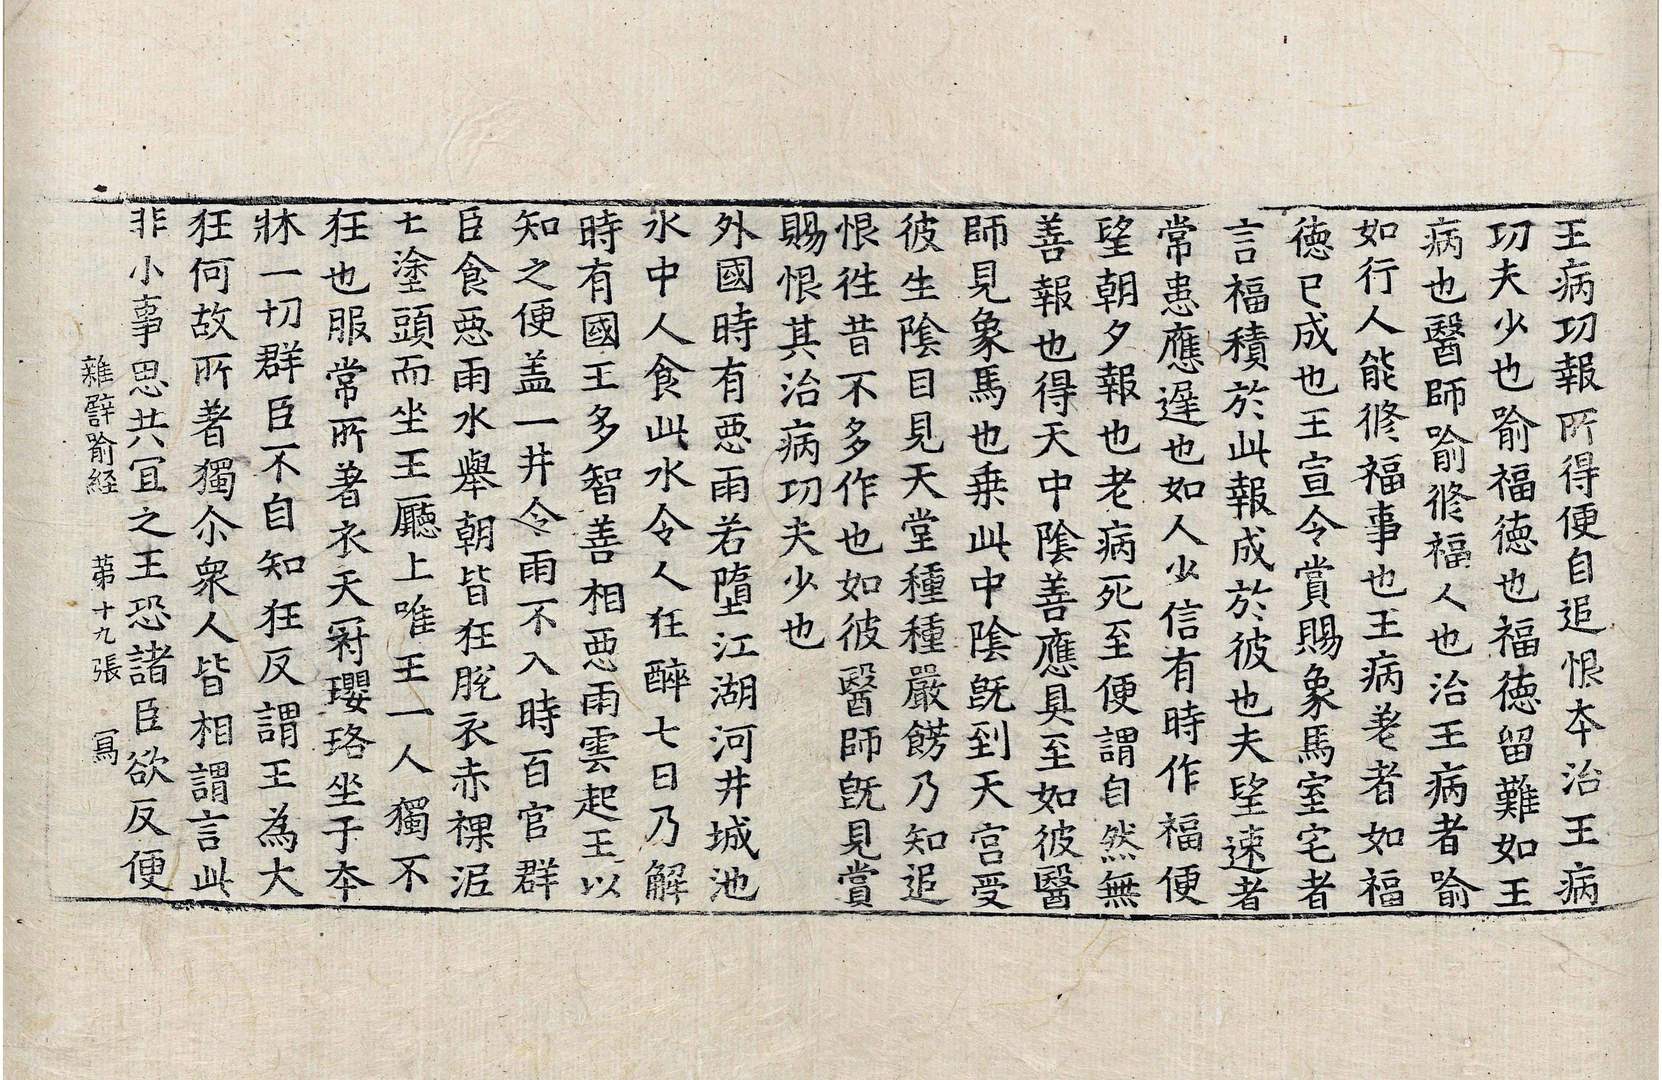 王病功報所得便自追恨本治王病
功夫少也喻福德也福德留難如王
病也醫師喻修福人也治王病者喻
如行人能修福事也王病差者如福
德已成也王宣令賞賜象馬室宅者
言福積於此報成於彼也夫望速者
常患應遅也如人少信有時作福便
望朝夕報也老病死至便謂自然無
善報也得天中陰善應具至如彼醫
師見象馬也乗此中陰旣到天宮受
彼生陰目見天堂種種嚴餝乃知追
恨徃昔不多作也如彼醫師旣見賞
賜恨其治病功夫少也
外國時有惡雨若墮江湖河井城池
水中人食此水令人狂醉七日乃解
時有國王多智善相惡雨雲起王以
知之便盖一井令雨不入時百官群
臣食惡雨水舉朝皆狂脫衣赤裸泥
土塗頭而坐王廳上唯王一人獨不
狂也服常所著衣天冠瓔珞坐于本
牀一切群臣不自知狂反謂王為大
狂何故所著獨尒衆人皆相謂言此
非小事思共冝之王恐諸臣欲反便
雜譬喻経 苐十九張 冩